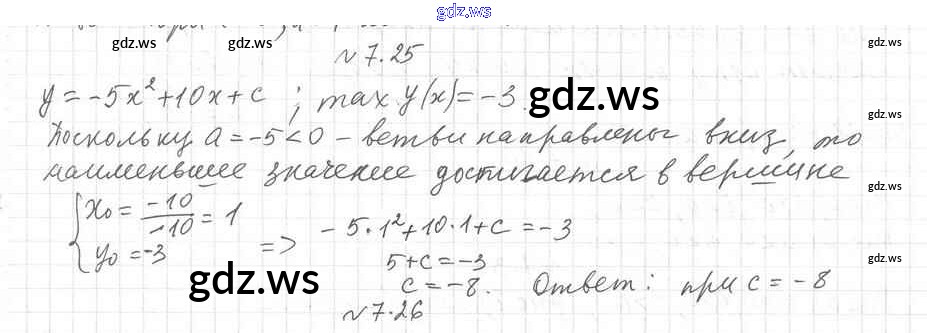 gdz.ws
gdz.ws gdz.ws gdz.ws
№ 7.25
y = -5x² + 10x + c ; max y(x) = -3. gdz.ws
Поскольку a = -5 < 0 - ветви направлены вниз, то gdz.ws
наименьшее значение достигается в вершине gdz.ws
{ x₀ = -10/-10 = 1
y₀ = -3 => -5·1² + 10·1 + c = -3
gdz.ws 5 + c = -3 gdz.ws
c = -8. Ответ: при c = -8
№ 7.26